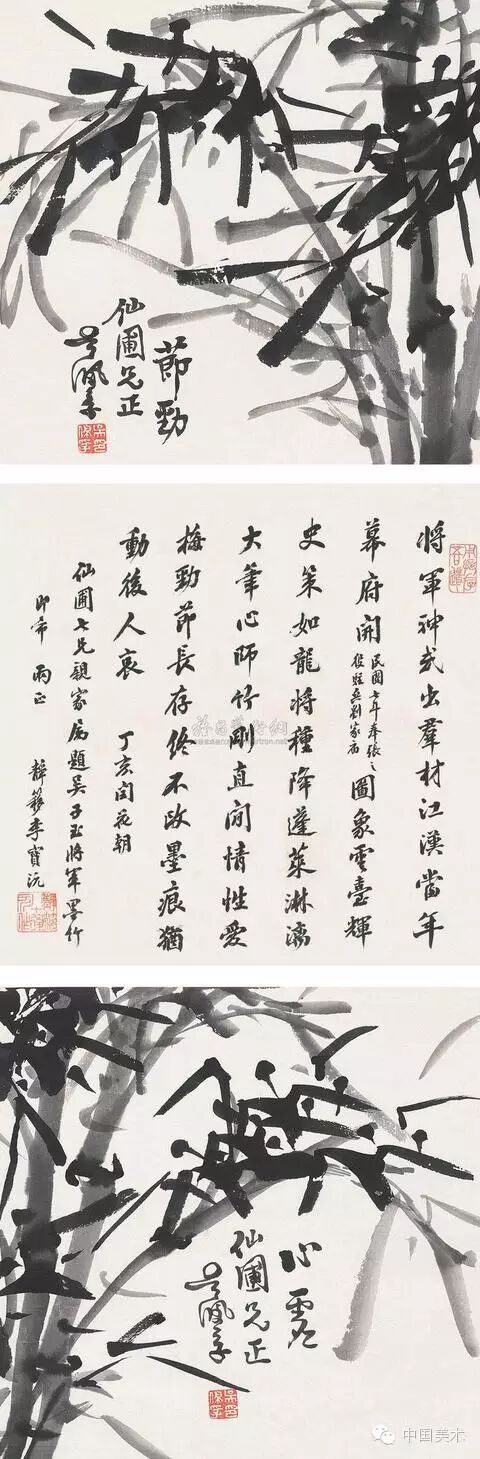 節勁
仙圃兄正
吳佩孚
將軍神武出羣材江漢當年
幕府開
民國七年奉張之
後駐兵劉家廟
圖象雲臺輝
史策如龍將種降蓬萊淋漓
大筆心師竹剛直閒情性愛
梅勁節長存終不改墨痕猶
動後人哀 丁亥閏花朝
仙圃七兄親家屬題吳子玉將軍墨竹
即希 兩正
靜簃李寶沅
心虛
仙圃兄正
吳佩孚
中国美术